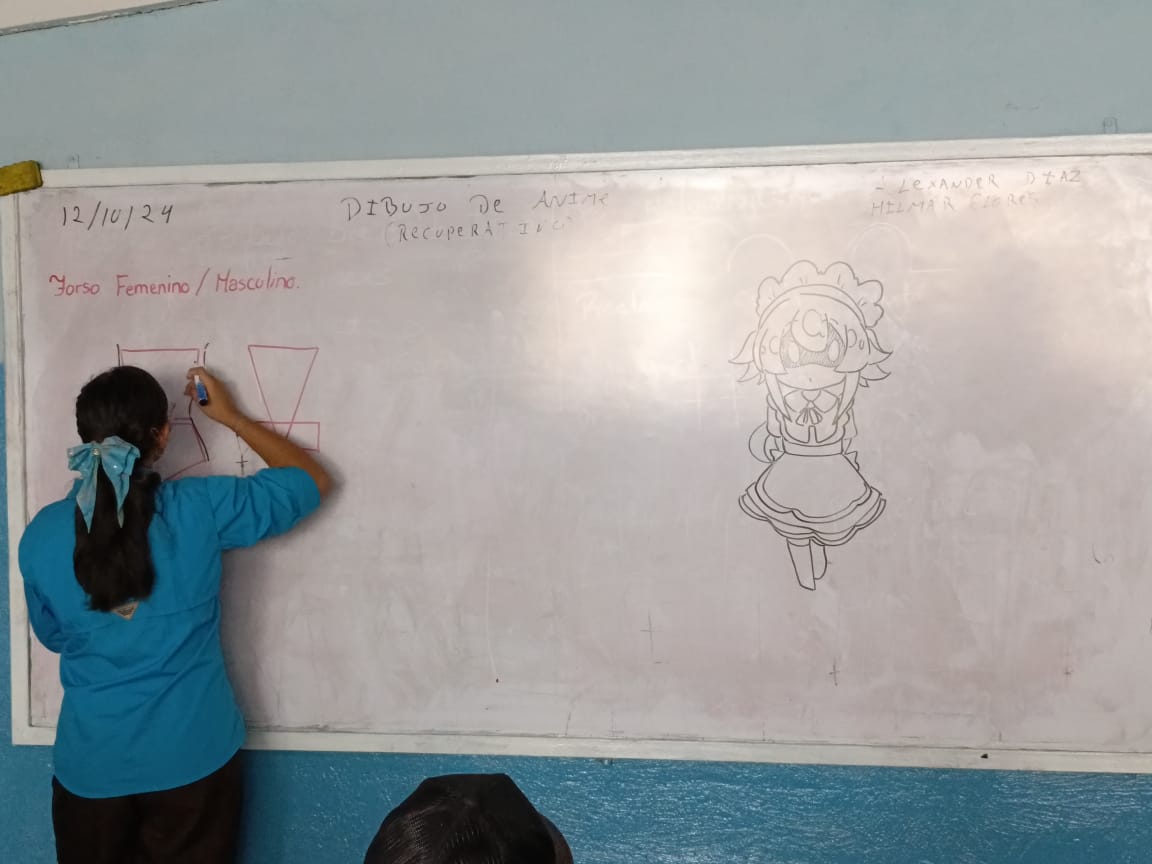 12/10/24
DIBUJO DE ANIME
(RECUPERATIVO)
ALEXANDER DIAZ
HILMAR FLORES
Torso Femenino / Masculino.